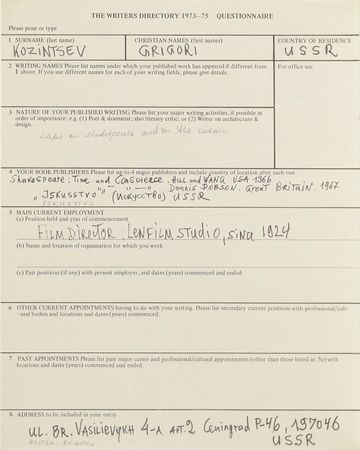 THE WRITERS DIRECTORY 1973-75 QUESTIONNAIRE
Please print or type
1 SURNAME (last name)
KOZINTSEV
CHRISTIAN NAMES (first names)
GRIGORI
COUNTRY OF RESIDENCE
USSR
2 WRITING NAMES Please list names under which your published work has appeared if different from
1 above. If you use different names for each of your writing fields, please give details.
For office use
3 NATURE OF YOUR PUBLISHED WRITING Please list your major writing activities, if possible in
order of importance: e.g. (1) Poet & dramatist; also literary critic; or (2) Writer on architecture &
design.
writer on Shakespeare and on the cinema
4 YOUR BOOK PUBLISHERS Please list up to 4 major publishers and include country of location after each one.
Shakespeare: Time and Conscience. Hill and WANG USA 1966
" — " — DENNIS DOBSON. Great BRITAIN. 1967
"JSKUSSTVO" (Искусство) USSR
ISKUSSTVO
5 MAIN CURRENT EMPLOYMENT
(a) Position held and year of commencement
FILM DIRECTOR, LENFILM STUDIO, since 1924
(b) Name and location of organisation for which you work
(c) Past positions (if any) with present employer, and dates (years) commenced and ended
6 OTHER CURRENT APPOINTMENTS having to do with your writing. Please list secondary current positions with professional/cult-
ural bodies and locations and dates (years) commenced.
7 PAST APPOINTMENTS Please list past major career and professional/cultural appointments (other than those listed in 5c) with
locations and dates (years) commenced and ended.
8 ADDRESS to be included in your entry
UL. BR. VASILIEVYKH 4-A APT. 2 Leningrad P-46, 197046
USSR